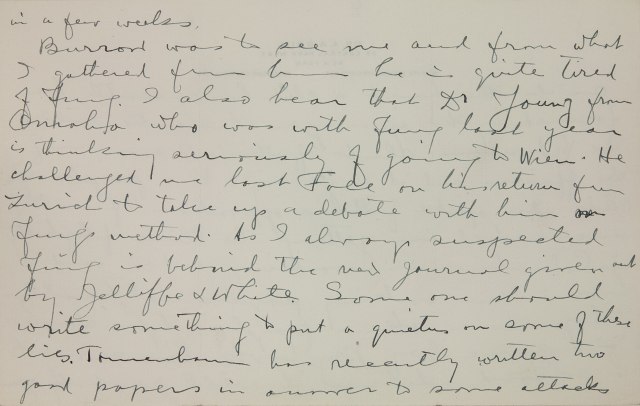 in a few weeks.
Burrow was to see me and from what
I gathered from him he is quite tired
of Jung. I also hear that Dr Young from
Omaha who was with Jung last year
is thinking seriously of going to Wien. He
challenged me last Fall on his return from
Zurich to take up a debate with him on
Jung's method. As I always suspected
Jung is behind the new Journal given out
by Jelliffe & White. Some one should
write something to put a quietus on some of these
lies. Tannenbaum has recently written two
good papers in answer to some attacks